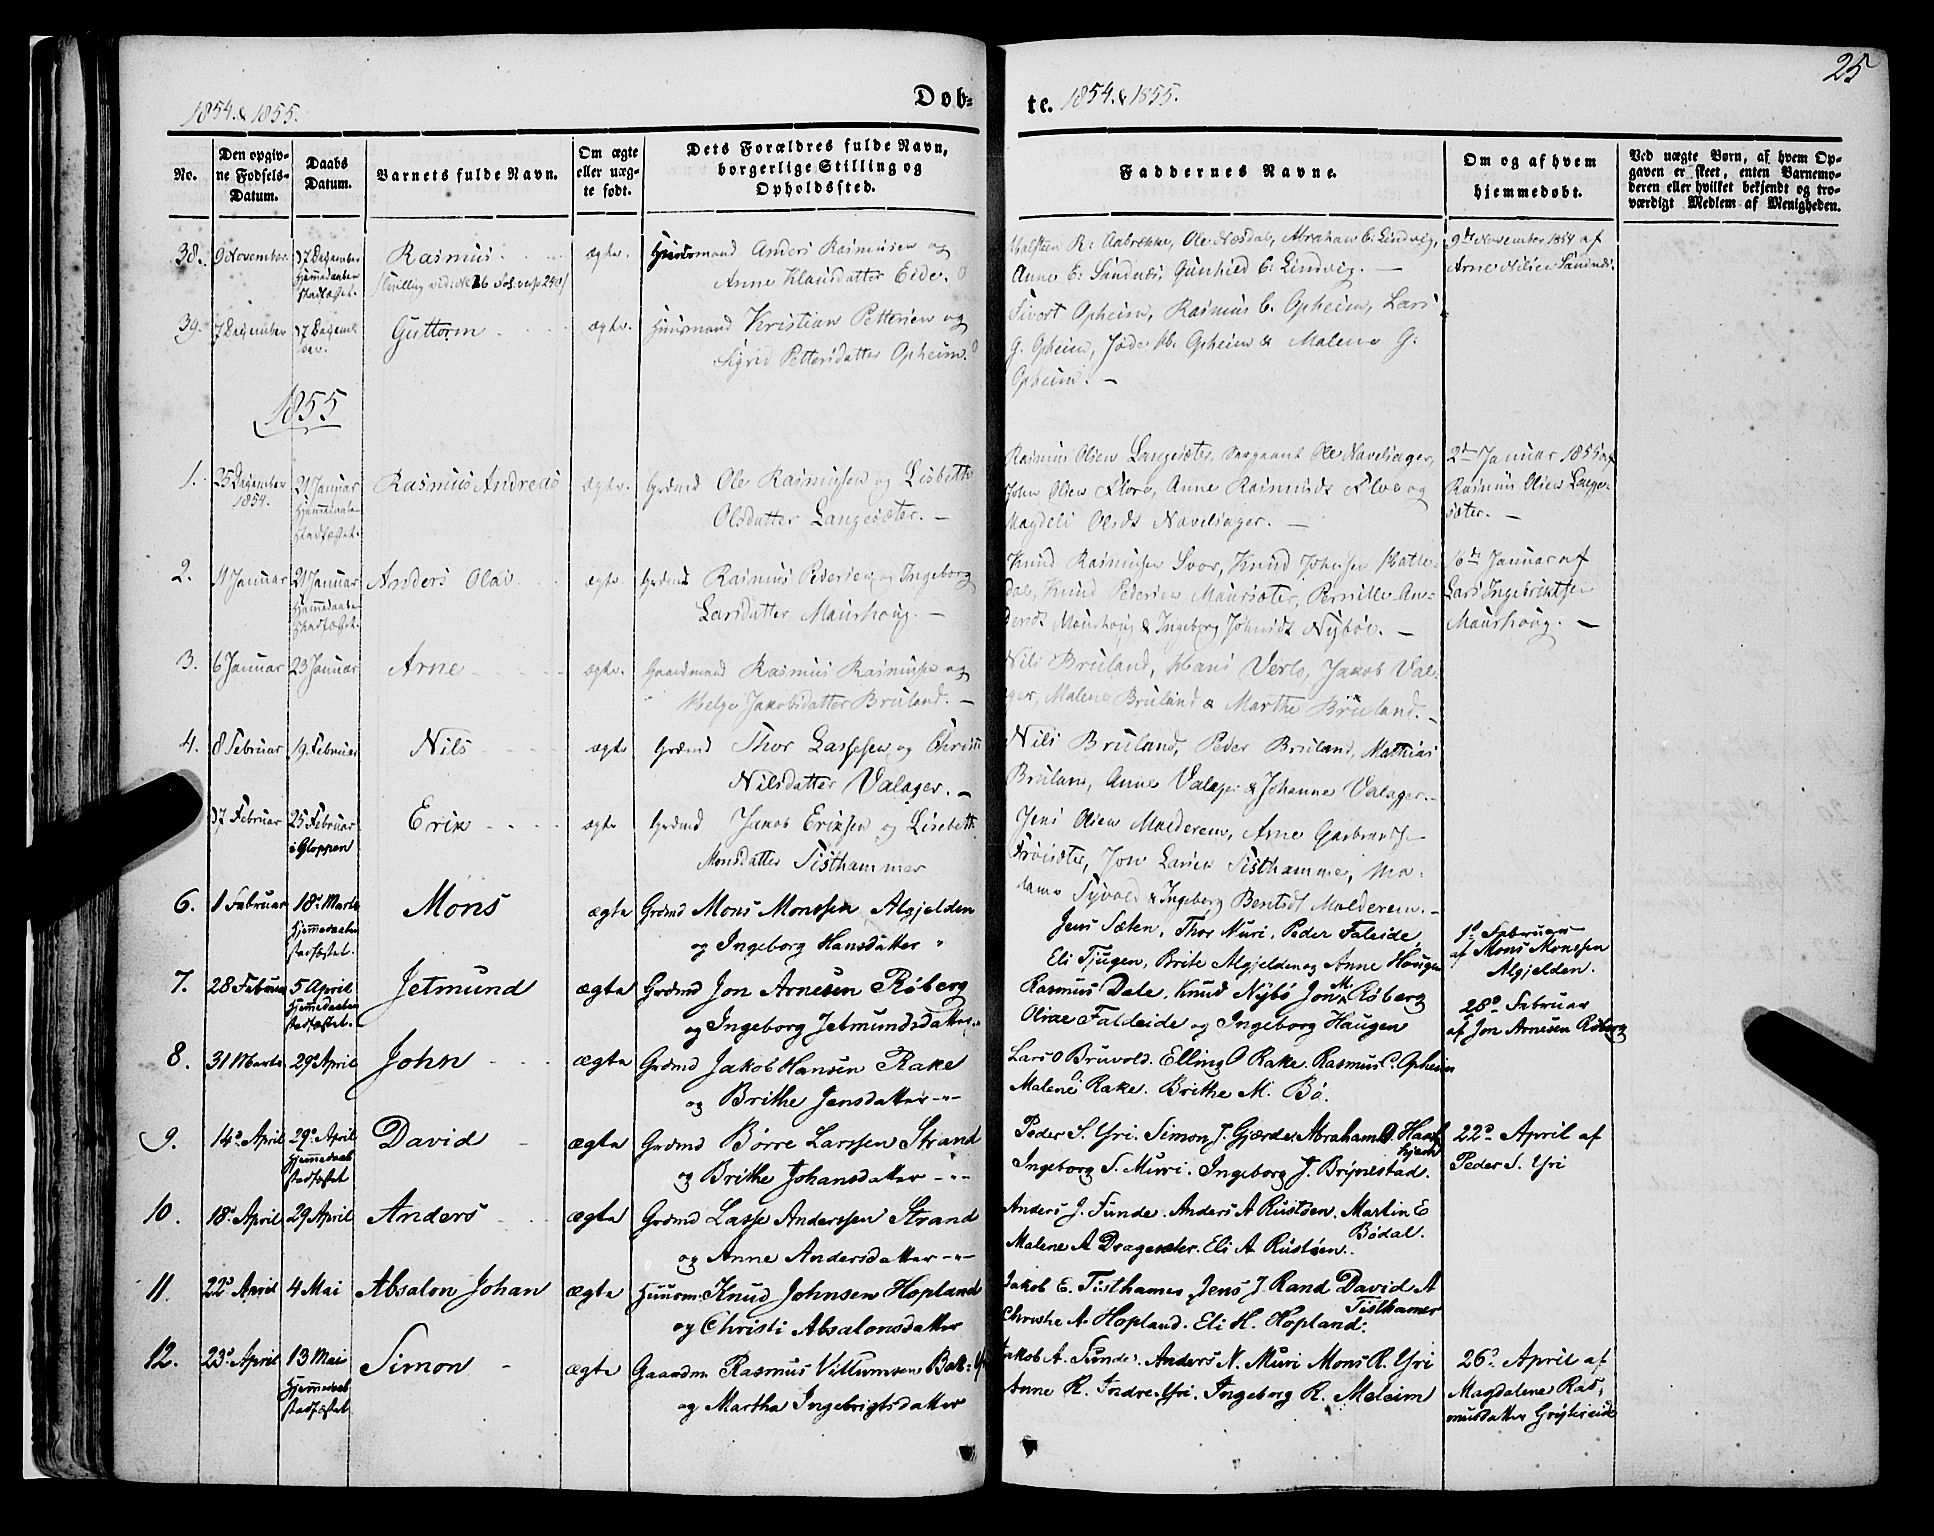 25
1854 & 1855.
Døb-
te. 1854 & 1855.
No.
Den opgiv-
ne Fødsels-
Datum.
Daabs
Datum.
Barnets fulde Navn.
Om ægte
eller uæg-
te født.
Dets Forældres fulde Navn,
borgerlige Stilling og
Opholdssted.
Faddernes Navne.
Om og af hvem
hjemmedøbt.
Ved uægte Børn, af hvem Op-
gaven er skeet, enten Barnemo-
deren eller hvilket bekjendt og tro-
værdigt Medlem af Menigheden.
38. 9 November 17 December Rasmus ægte. Huusmand Anders Rasmusen og
Hjemmedaaben
stadfæstet.
Anne Klausdatter Eide.
Anne E: Sandnæs, Gunhild E: Lindvig. —
9de November 1854 af
Arne Nilsen Sandnes.
39. 7 December 17 Decem-
ber.
Guttorm ægte. Huusmand Kristian Pettersen og
Sigrid Pettersdatter Opheim.
Sivert Opheim, Rasmus C. Opheim, Lars
G. Opheim, & Malene G:
Opheim. —
1855
1. 25 December
1854.
21 Januar
Hjemmedaaben
stadfæstet.
Rasmus Andreas ægte. Grdmd Ole Rasmusen og Lisbeth
Olsdatter Langesæter. —
Rasmus Olsen Langesæter, Ole Navelsager,
John Olsen Flore, Anne Rasmusdt Flore og
Magdeli Olsdt Navelsager. —
2den Januar 1855 af
Rasmus Olsen Lange-
sæter. —
2. 11 Januar 21 Januar
Hjemmedaaben
stadfæstet.
Anders Olai ægte Grdmd Rasmus Pedersen og Ingeborg
Larsdatter Maurhoug. —
Knud Rasmusen Svor, Knud Johnsen Hatle-
dal, Knud Pedersen Maursæter, Pernille An-
dersdt Maurhoug & Ingeborg Johnsdt Nybøe. —
16de Januar af
Lars Ingebriktsen
Maurhoug. —
3. 6 Januar 23 Januar Arne ægte. Gaardmand Rasmus Rasmusen og
Helge Jakobsdatter Bruland. —
Nils Bruland, Hans Verlo, Jakob Val-
ager, Malene Bruland & Marthe Bruland. —
4. 8 Februar 19 Februar Nils ægte Grdmd Thor Lassesen og Christi
Nilsdatter Valager. —
Nils Bruland, Peder Bruland, Mathias
Bruland, Anne Valager & Johanne Valager. —
17 Februar 25 Februar
i Gloppen
Erik ægte Grdmd Jakob Eriksen og Lisebeth
Monsdatter Tisthammer
Jens Olsen Molderem, Arne
Frøisæter, Jon Larsen Tisthammer, Ma-
dame Sivold & Ingeborg Bentsdt Molderem. —
6. 1 Februar 18de Marts
Hjemmedaaben
stadfæstet.
Mons ægte Grdmd Mons Monssen Algjelden
og Ingeborg Hansdatter "
Jens Sæten, Thor Muri, Peder Faleide,
Eli Tjugen, Brite Algjelden og Anne Haugen
1de Februar
af Mons Monssen
Algjelden.
7. 28 Februar 5 April
Hjemmedaaben
stadfæstet.
Jetmund ægte Grdmd Jon Arnesen Røberg
og Ingeborg Jetmundsdatter "
Rasmus Dale. Knud Nybø Jon M. Røberg
Olive Faleide og Ingeborg Haugen
28de Februar
af Jon Arnesen Røberg
8. 31 Marts 29de April John ægte Grdmd Jakob Hansen Rake
og Brithe Jensdatter -"-
Lars O Bruvold. Elling O Rake. Rasmus C. Opheim
Malene Rake. Brithe M. Bø.
9. 14de April 29de April
Hjemmedaab
stadfæstet
David ægte Grdmd Børre Larssen Strand
og Brithe Johansdatter -"-
Peder S. Yri. Simon J. Gjærde. Abraham O. Haar
hjem
Ingeborg S. Muri. Ingeborg J. Brynestad.
22de April af
Peder S. Yri
10. 18de April 29 April Anders ægte Grdmd Lasse Anderssen Strand
og Anne Andersdatter -"-
Anders J. Sunde. Anders A Rustøen. Martin E
Bødal.
Malene A Dragesæter. Eli A. Rustøen.
11. 22de April 4 Mai Absalon Johan ægte Huusm. Knud Johnsen Hopland
og Christi Absalonsdatter
Jakob E. Tisthamer, Jens J. Rand David A
Tisthamer
Christie A. Hopland. Eli H. Hopland.
12. 23de April 13 Mai
Hjemmedaab
stadfæstet
Simon ægte Gaardm. Rasmus Villumsen Bak-Yri
og Martha Ingebrigtsdatter
Jakob A. Sunde. Anders N. Muri Mons R. Yri
Anne R. Indre-Yri. Ingeborg R. Meleim
26de April af
Magdalene Ras-
musdatter